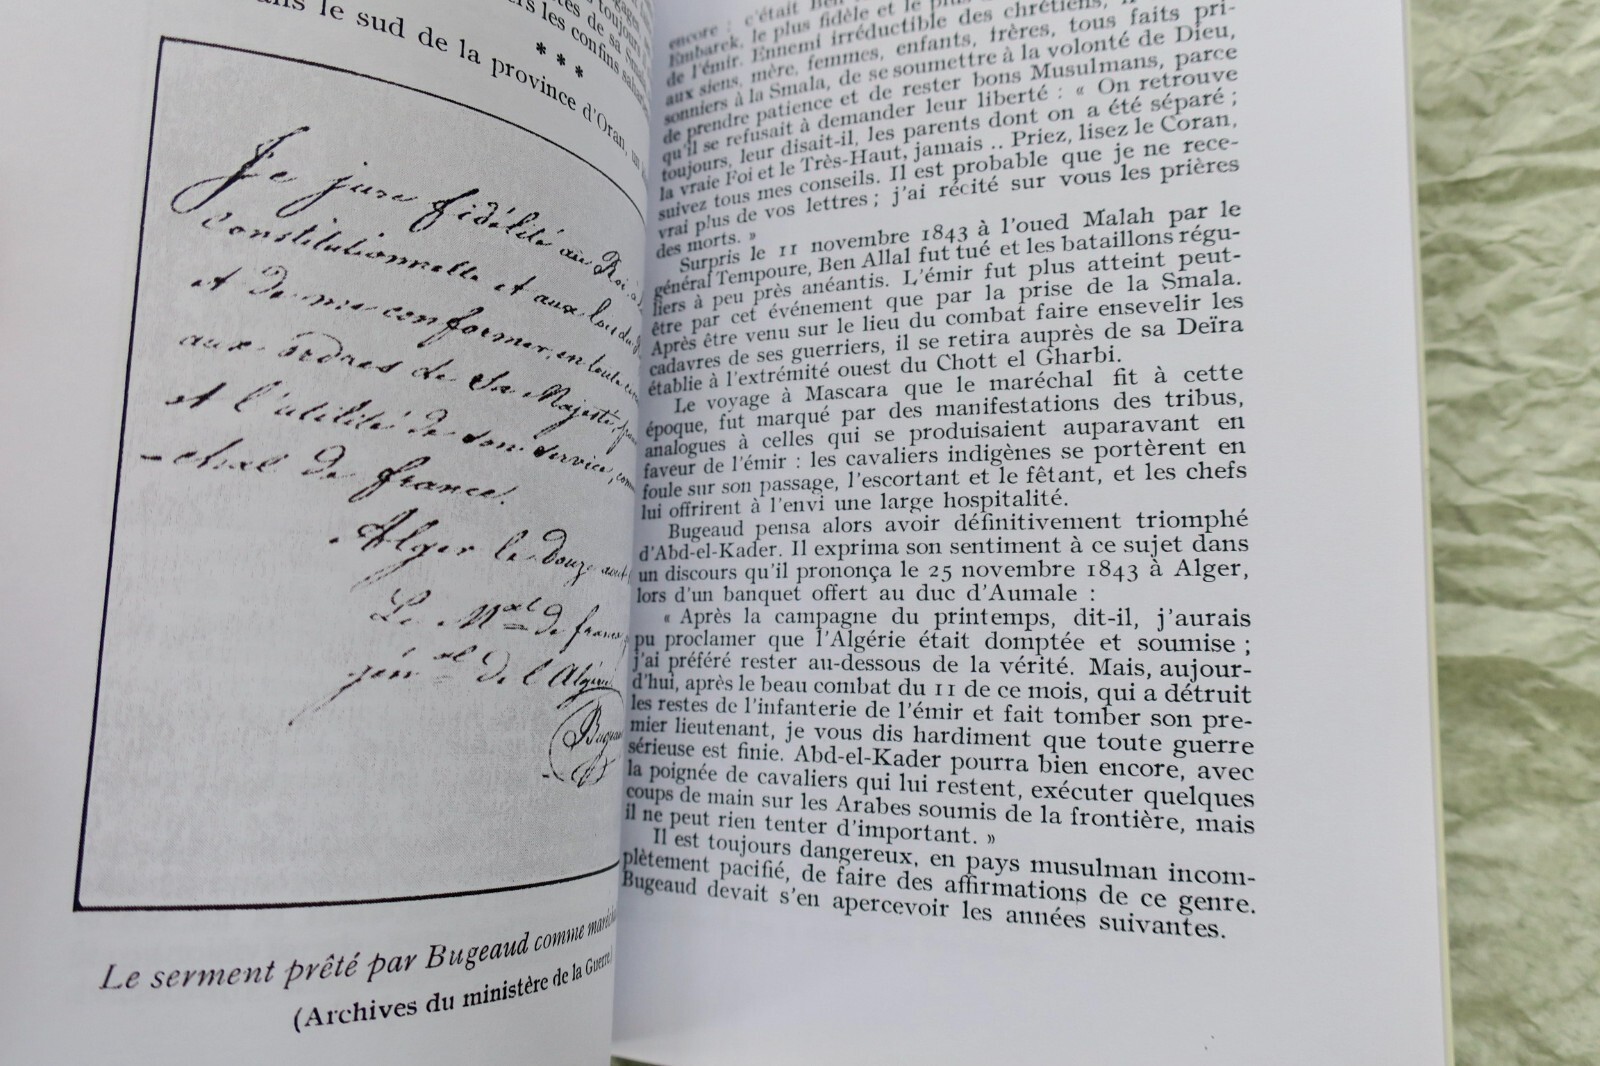 dans le sud de la province d'Oran, un
* * *
Je jure fidélité au Roi
constitutionnelle et aux lois du
et de me conformer, en toute
aux ordres de Sa Majesté,
et l'utilité de son service,
-chal de france.
Alger le douze août
Le Mxal de france
génxal de l'Algérie
Bugeaud
Le serment prêté par Bugeaud comme
(Archives du ministère de la Guerre)
encore : c'était Ben
Embarek, le plus fidèle et le plus
de l'émir. Ennemi irréductible des chrétiens,
aux siens, mère, femmes, enfants, frères, tous faits pri-
sonniers à la Smala, de se soumettre à la volonté de Dieu,
de prendre patience et de rester bons Musulmans, parce
qu'il se refusait à demander leur liberté : « On retrouve
toujours, leur disait-il, les parents dont on a été séparé ;
la vraie Foi et le Très-Haut, jamais .. Priez, lisez le Coran,
suivez tous mes conseils. Il est probable que je ne rece-
vrai plus de vos lettres ; j'ai récité sur vous les prières
des morts. »
Surpris le 11 novembre 1843 à l'oued Malah par le
général Tempoure, Ben Allal fut tué et les bataillons régu-
liers à peu près anéantis. L'émir fut plus atteint peut-
être par cet événement que par la prise de la Smala.
Après être venu sur le lieu du combat faire ensevelir les
cadavres de ses guerriers, il se retira auprès de sa Deïra
établie à l'extrémité ouest du Chott el Gharbi.
Le voyage à Mascara que le maréchal fit à cette
époque, fut marqué par des manifestations des tribus,
analogues à celles qui se produisaient auparavant en
faveur de l'émir : les cavaliers indigènes se portèrent en
foule sur son passage, l'escortant et le fêtant, et les chefs
lui offrirent à l'envi une large hospitalité.
Bugeaud pensa alors avoir définitivement triomphé
d'Abd-el-Kader. Il exprima son sentiment à ce sujet dans
un discours qu'il prononça le 25 novembre 1843 à Alger,
lors d'un banquet offert au duc d'Aumale :
« Après la campagne du printemps, dit-il, j'aurais
pu proclamer que l'Algérie était domptée et soumise ;
j'ai préféré rester au-dessous de la vérité. Mais, aujour-
d'hui, après le beau combat du 11 de ce mois, qui a détruit
les restes de l'infanterie de l'émir et fait tomber son pre-
mier lieutenant, je vous dis hardiment que toute guerre
sérieuse est finie. Abd-el-Kader pourra bien encore, avec
la poignée de cavaliers qui lui restent, exécuter quelques
coups de main sur les Arabes soumis de la frontière, mais
il ne peut rien tenter d'important. »
Il est toujours dangereux, en pays musulman incom-
plètement pacifié, de faire des affirmations de ce genre.
Bugeaud devait s'en apercevoir les années suivantes.